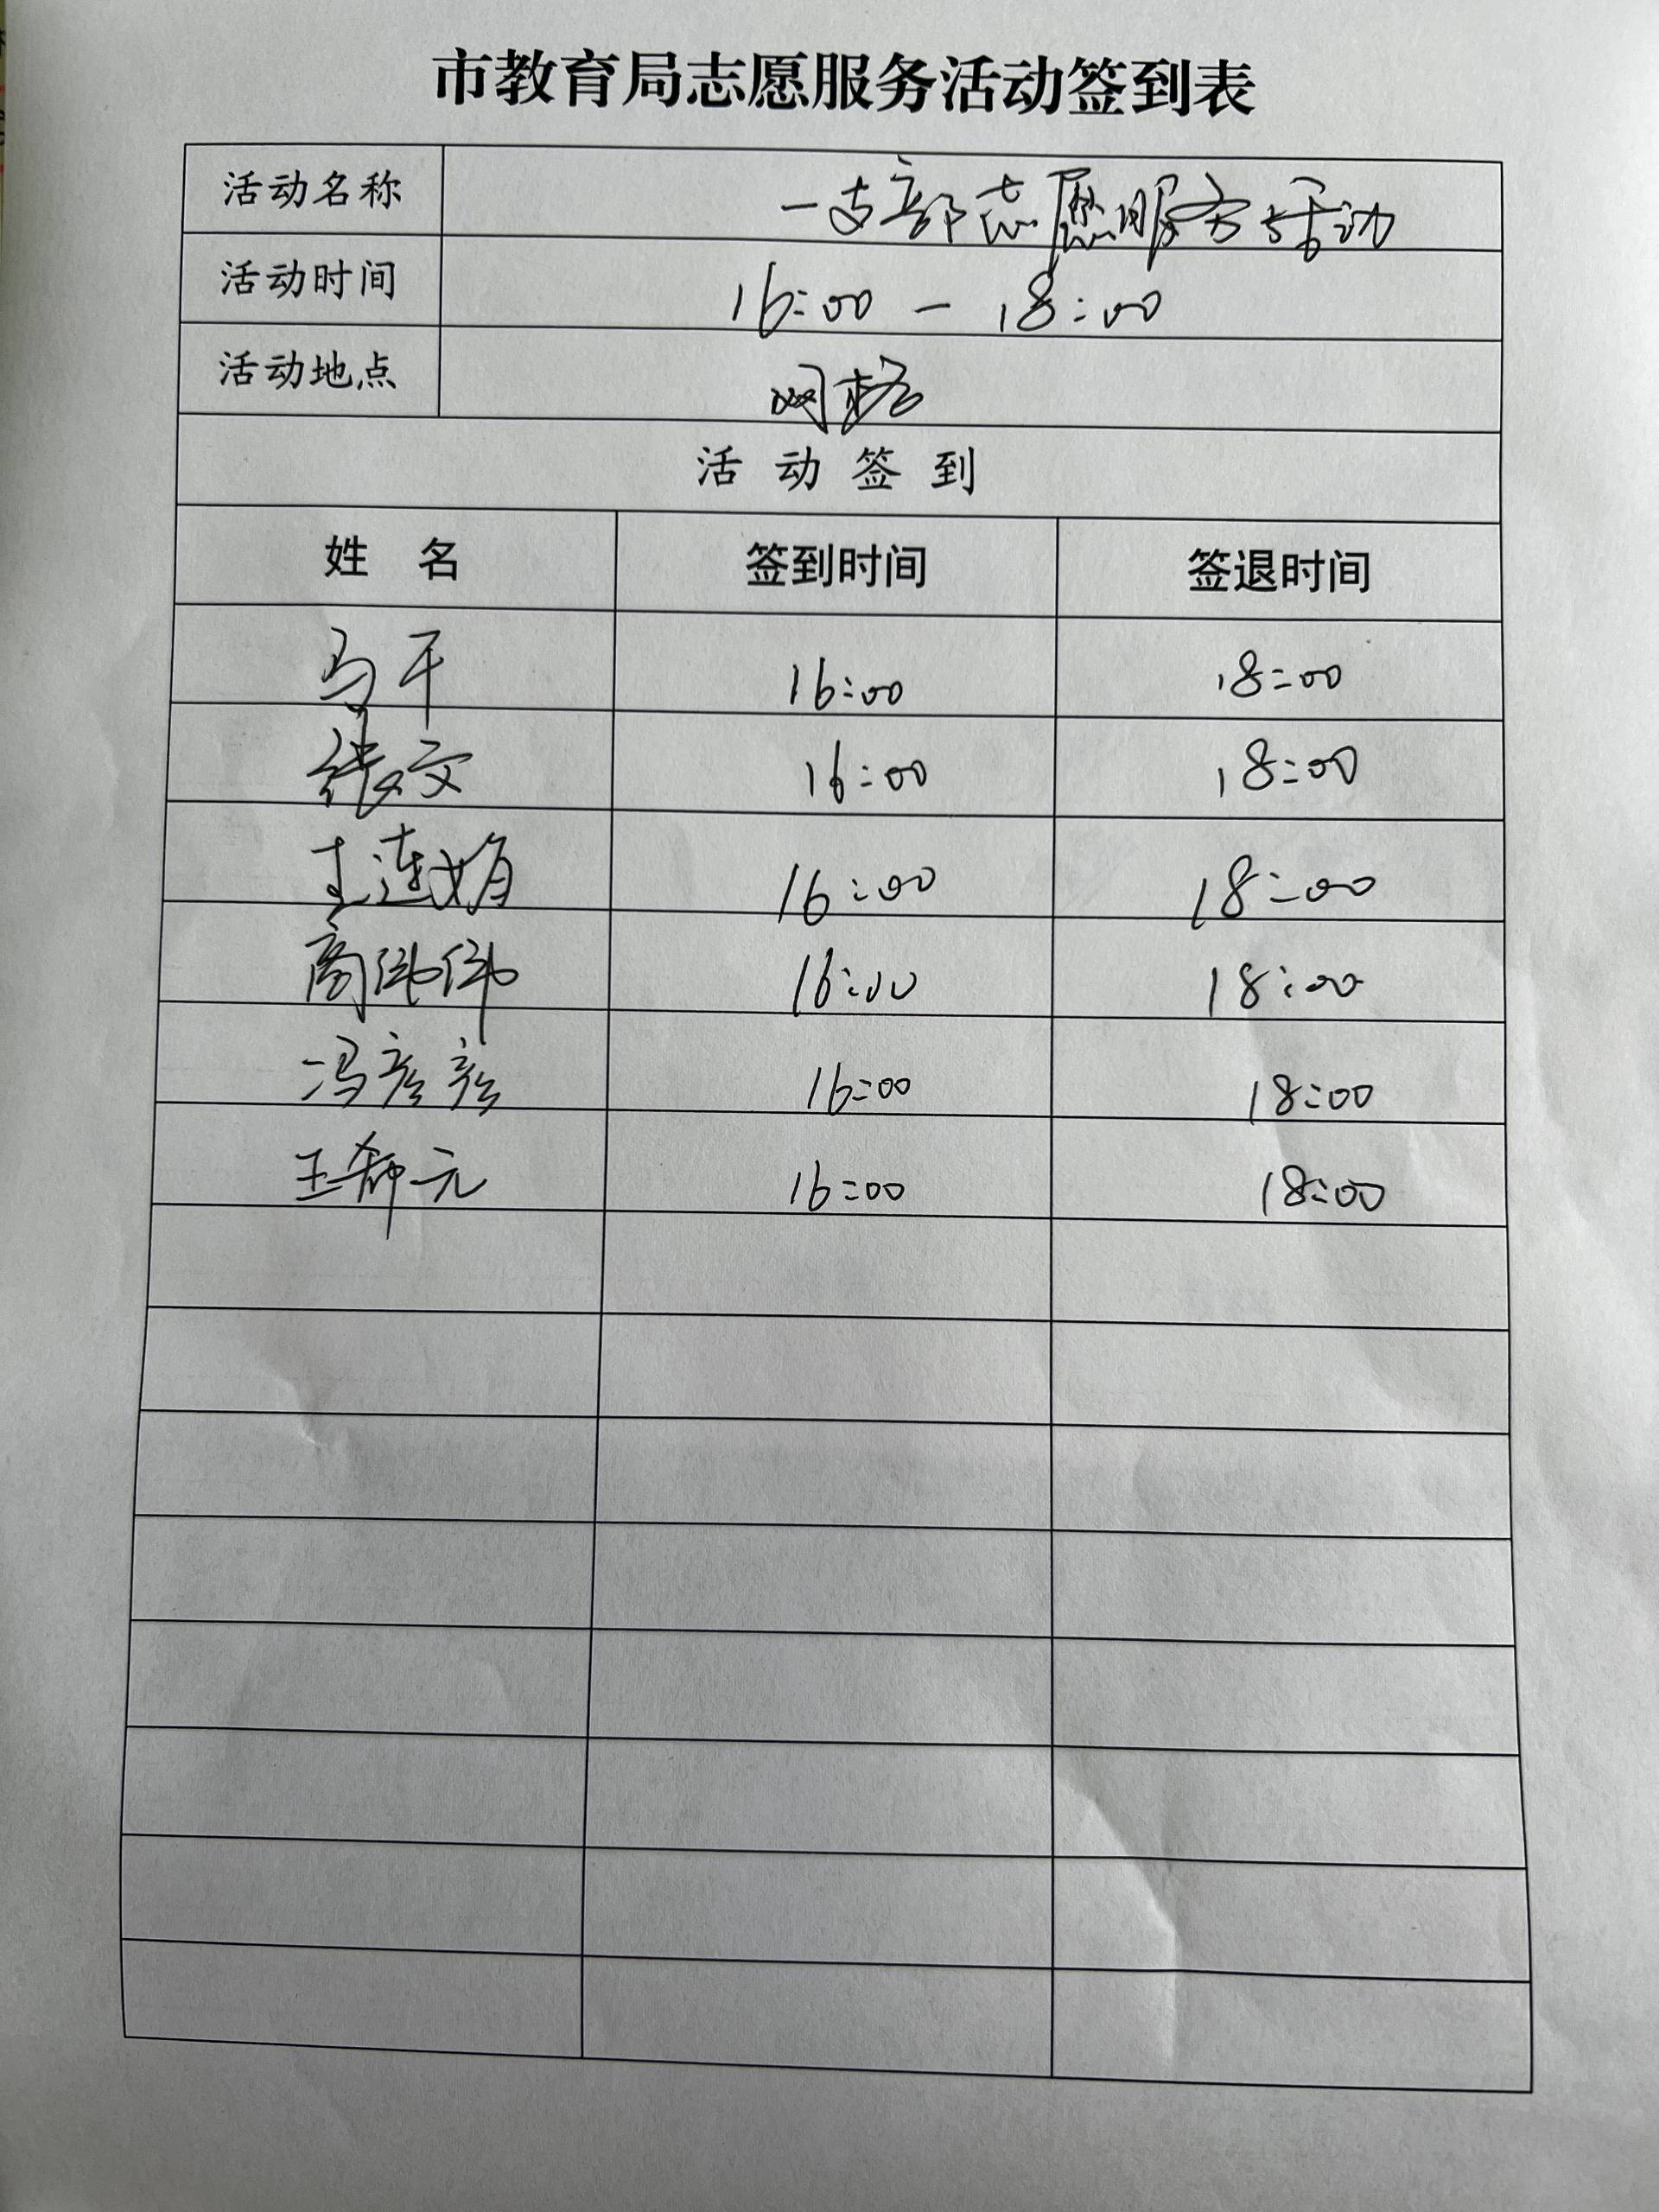 市教育局志愿服务活动签到表
活动名称 一支部志愿服务活动
活动时间 16:00 - 18:00
活动地点 网格
活动签到
姓 名 签到时间 签退时间
马千 16:00 18:00
16:00 18:00
王莲娟 16:00 18:00
商伟伟 16:00 18:00
冯彦彦 16:00 18:00
王 元 16:00 18:00